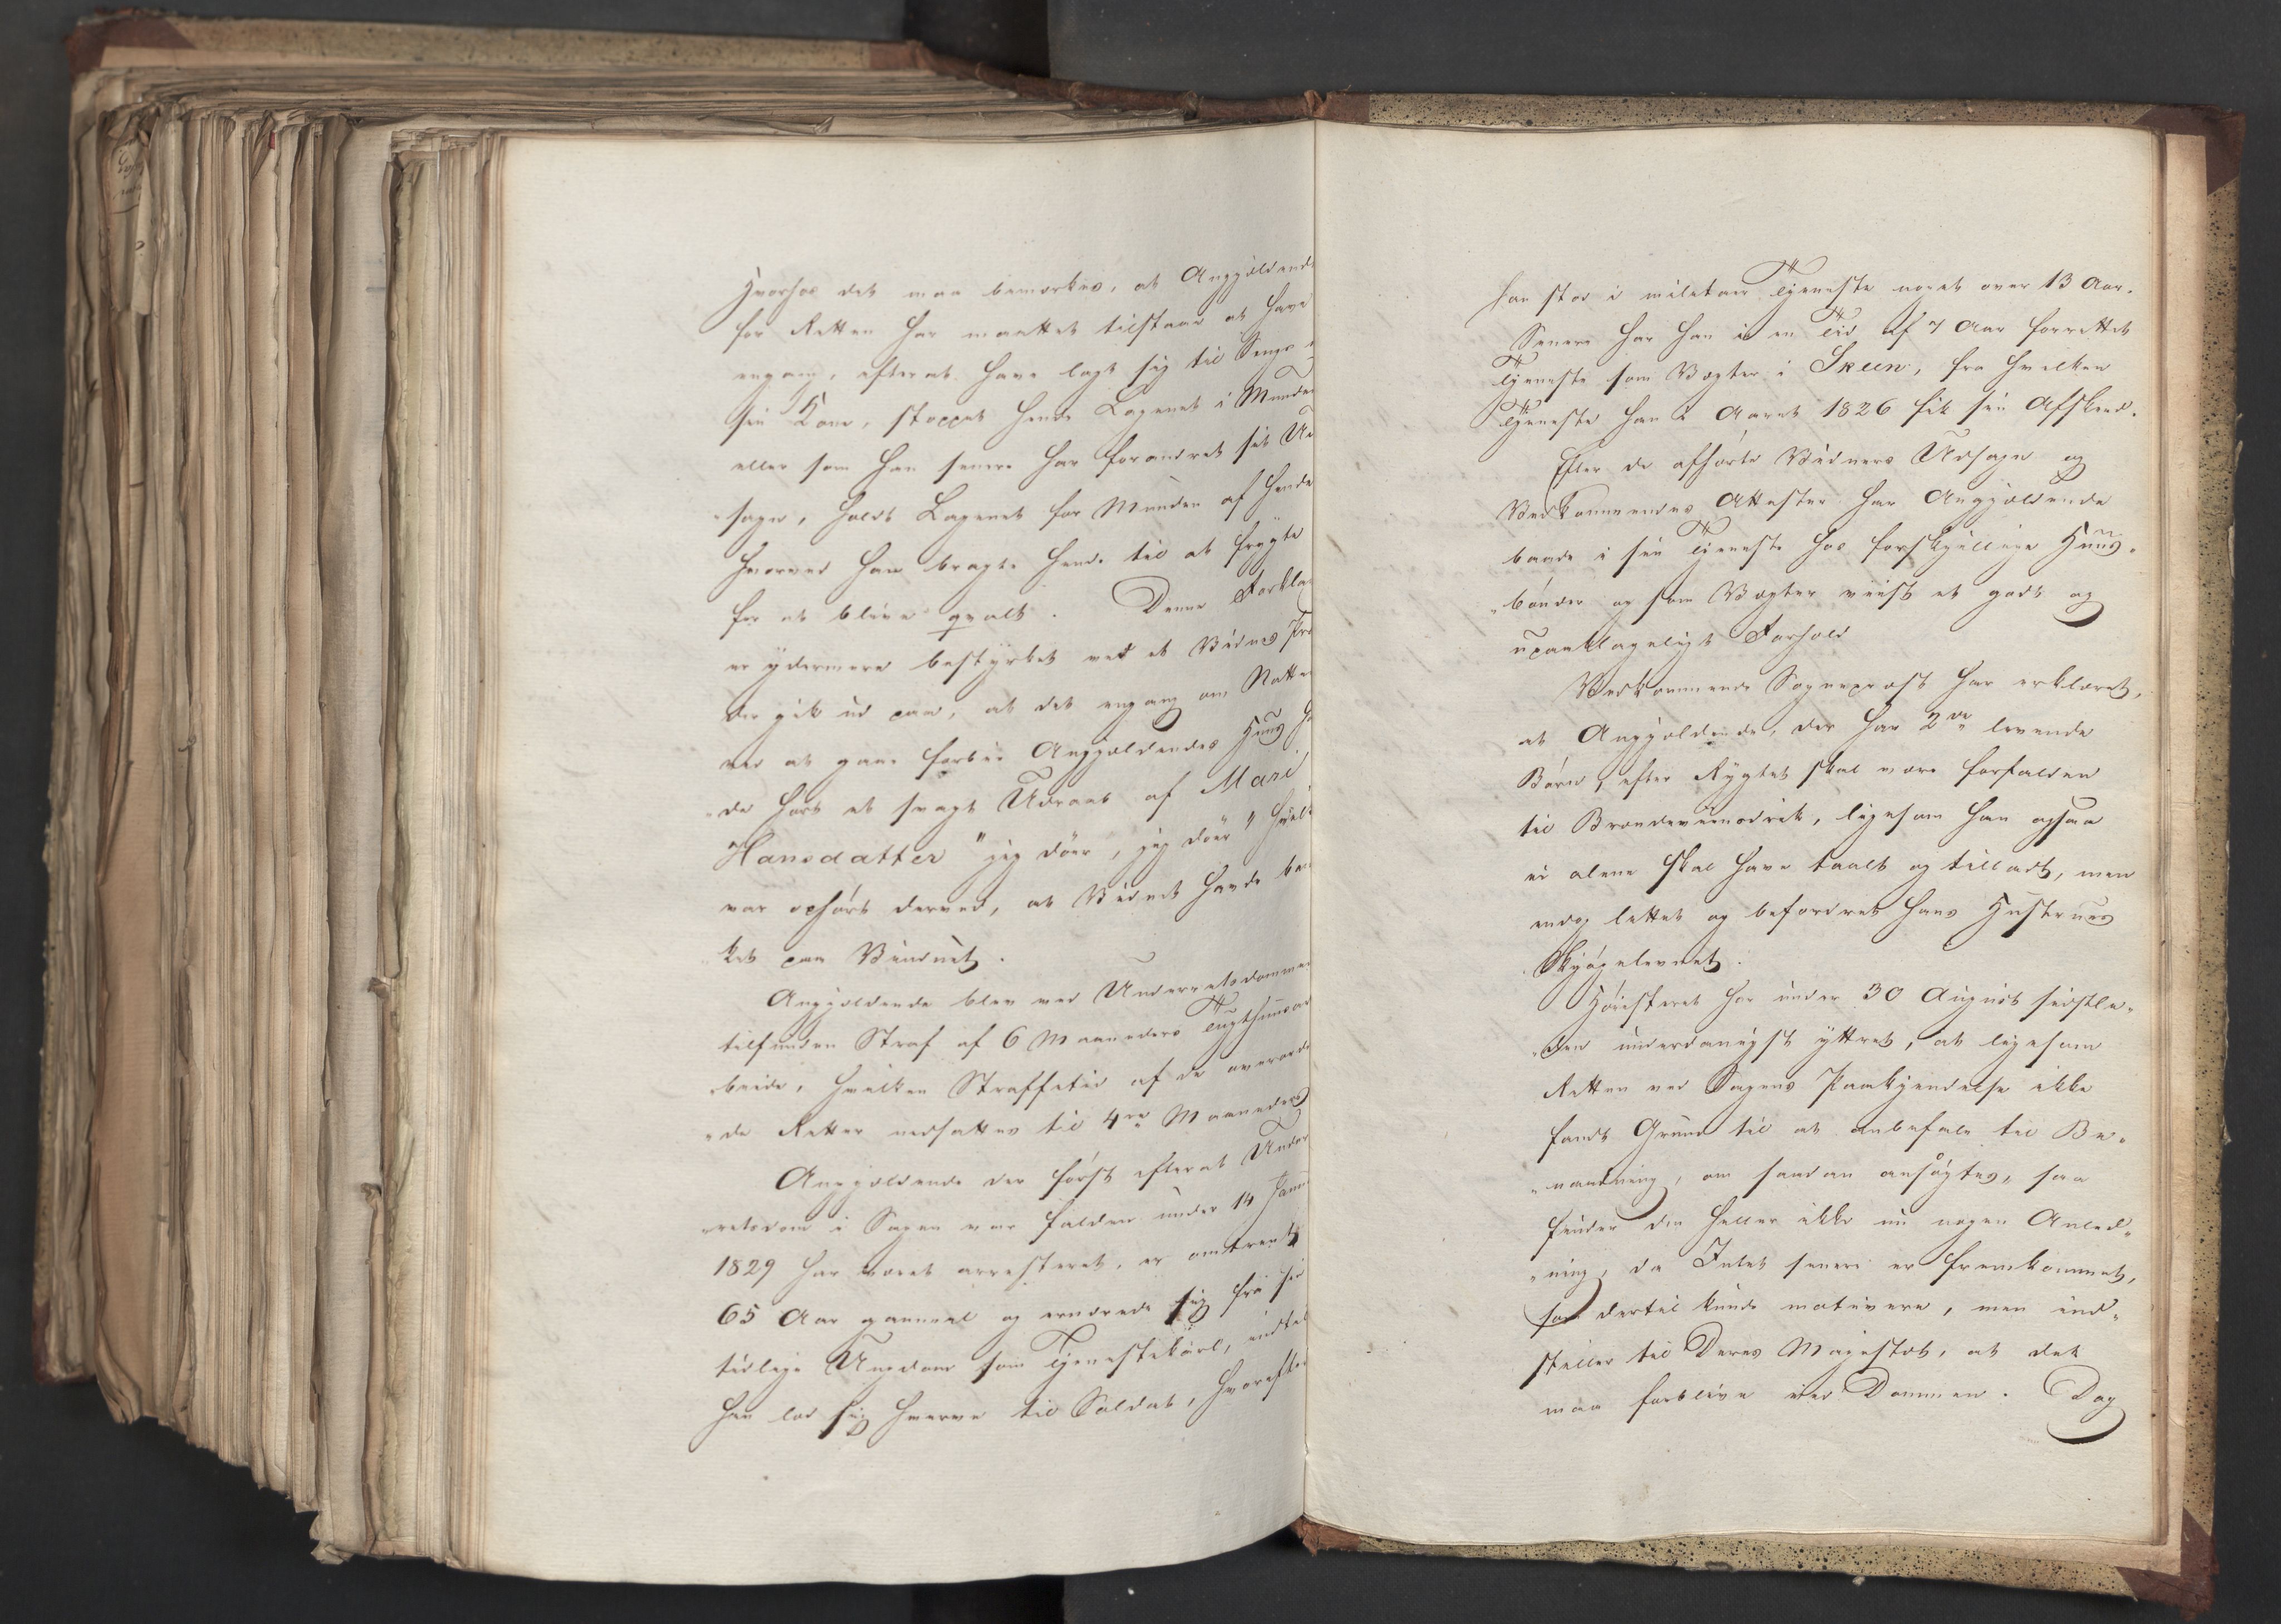 Hvorhos det maa bemærkes, at Anggjældend
for Retten har maattet tilstaae at have
engang, efterat have lagt sig til Sengs
sin Kone, stoppet hende Lagenet i Munde
eller som han senere har forandret sit Ud
"sagn, holdt Lagenet for Munden af hende
hvorved han bragte hende til at frygte
for at blive qvalt. Denne Forkla
er ydermere bestyrket ved et Vidnes Pro
der gik ud paa, at det engang om Natte
ved at gaae forbie Anggjældendes Huus ha
"de hørt et svagt Udraab af Mari
Hansdatter "jeg døer, jeg døer" hvil
var ophørt derved, at Vidnet havde ban
"ket paa Vinduet.
Anggjældende blev ved Underretsdommen
tilfunden Straf af 6 Maaneders Tugthuusar
"beide, hvilken Straffetid af de overord
"de Retter nedsattes til 4re Maaneder
Anggjældende der først efterat Under
"retsdom i Sagen var falden under 14 Janu
1829 har været arresteret, er omtrent
65 Aar gammel og ernærede sig fra sin
tidlige Ungdom som Tjenestekarl, indtil
han lod sig hverve til Soldat, hvorefter
han stod i militair Tjeneste noget over 13 Aar.
Senere har han i en Tid af 7 Aar forrettet
Tjeneste som Vægter i Skeen, fra hvilken
Tjeneste han i Aaret 1826 fik sin Afskeed.
Efter de afhørte Vidners Udsagn og
Vedkommendes Attester har Anggjældende
baade i sin Tjeneste hos forskjellige Huus"
"bønder og som Vægter viist et godt og
upaaklageligt Forhold
Vedkommende Sognepræst har erklæret,
at Anggjældende, der har 2de levende
Børn, efter Rygtet skal være forfalden
til Brændeviinsdrik, ligesom han ogsaa
ei alene skal have taalt og tilladt, men
endog lettet og befordret hans Hustrues
Skjøgelevnet.
Høiesteret har under 30 August sidstle"
"den underdanigst yttret, at ligesom
Retten ved Sagens Paakjendelse ikke
fandt Grund til at anbefale til Be"
"naadning, om saadan ansøgtes, saa
finder den heller ikke nu nogen Anled"
"ning, da Intet senere er fremkommet,
som dertil kunde motivere, men ind"
stiller til Deres Majestæt, at det
maa forblive ved Dommen. Dog